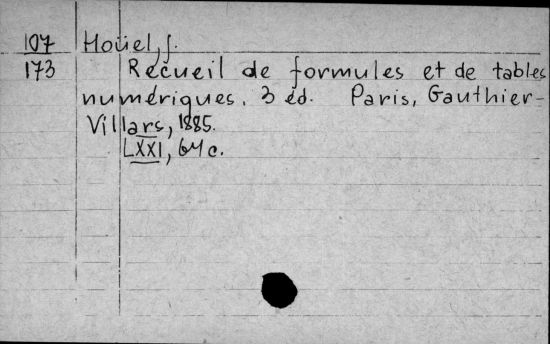 107 Hoüel, J.
173 Recueil de formules et de tables
numériques. 3 éd. Paris, Gauthier-
Villars, 1885.
LXXI, 64 c.